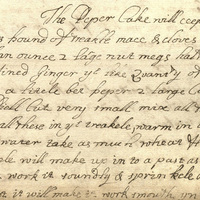 The Peper Cake will ceep
pound of treakle mace & cloves
an ounce 2 large nut megs hal
ined Ginger ye like quanty of
a litele bet peper 2 large
small but very small mix all
all these in ye treakele warm in
water take as much
will make up in to a past as
work it soundly & sprinkele
it will make it work smouth